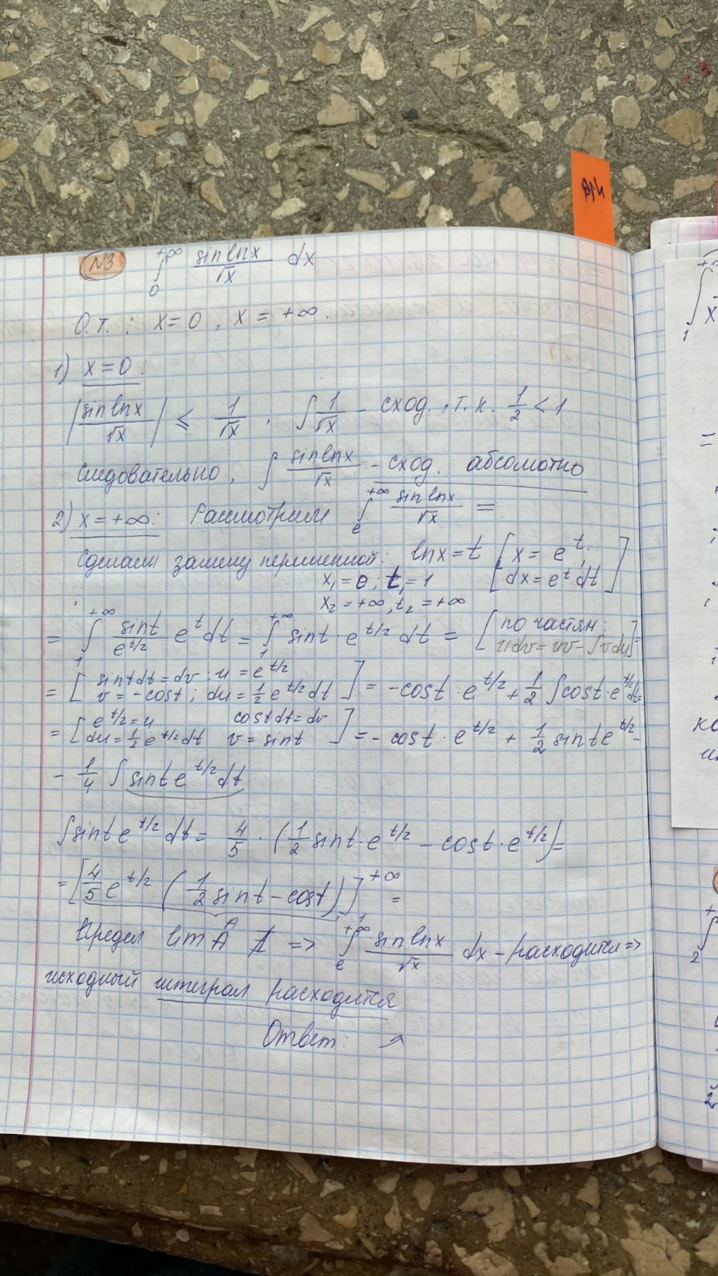 №3 ∫₀^{+∞} sin lnx / √x dx
О.т.: x=0, x=+∞.
1) x=0:
|sin lnx / √x| ≤ 1/√x, ∫ 1/√x - сход., т.к. 1/2 < 1
Следовательно, ∫ sin lnx / √x - сход. абсолютно
2) x=+∞: Рассмотрим ∫_e^{+∞} sin lnx / √x =
Сделаем замену переменной: lnx=t [x=e^t;
dx=e^t dt]
x₁=e; t₁=1
x₂=+∞, t₂=+∞
= ∫₁^{+∞} sint / e^{t/2} e^t dt = ∫₁^{+∞} sint · e^{t/2} dt = [по частям:
∫udv=uv-∫vdu]=
= [sintdt=dv; u=e^{t/2}
v=-cost; du=1/2 e^{t/2} dt] = -cost·e^{t/2} + 1/2 ∫cost·e^{t/2} dt=
= [e^{t/2}=u costdt=dv
du=1/2 e^{t/2} dt v=sint] = -cost·e^{t/2} + 1/2 sint e^{t/2} -
- 1/4 ∫ sint e^{t/2} dt
∫sint e^{t/2} dt = 4/5 · (1/2 sint·e^{t/2} - cost·e^{t/2})=
= [4/5 e^{t/2} (1/2 sint - cost)]₁^{+∞} =
A
Предел lim A ∄ => ∫_e^{+∞} sin lnx / √x dx - расходится =>
исходный интеграл расходится
Ответ: ↗